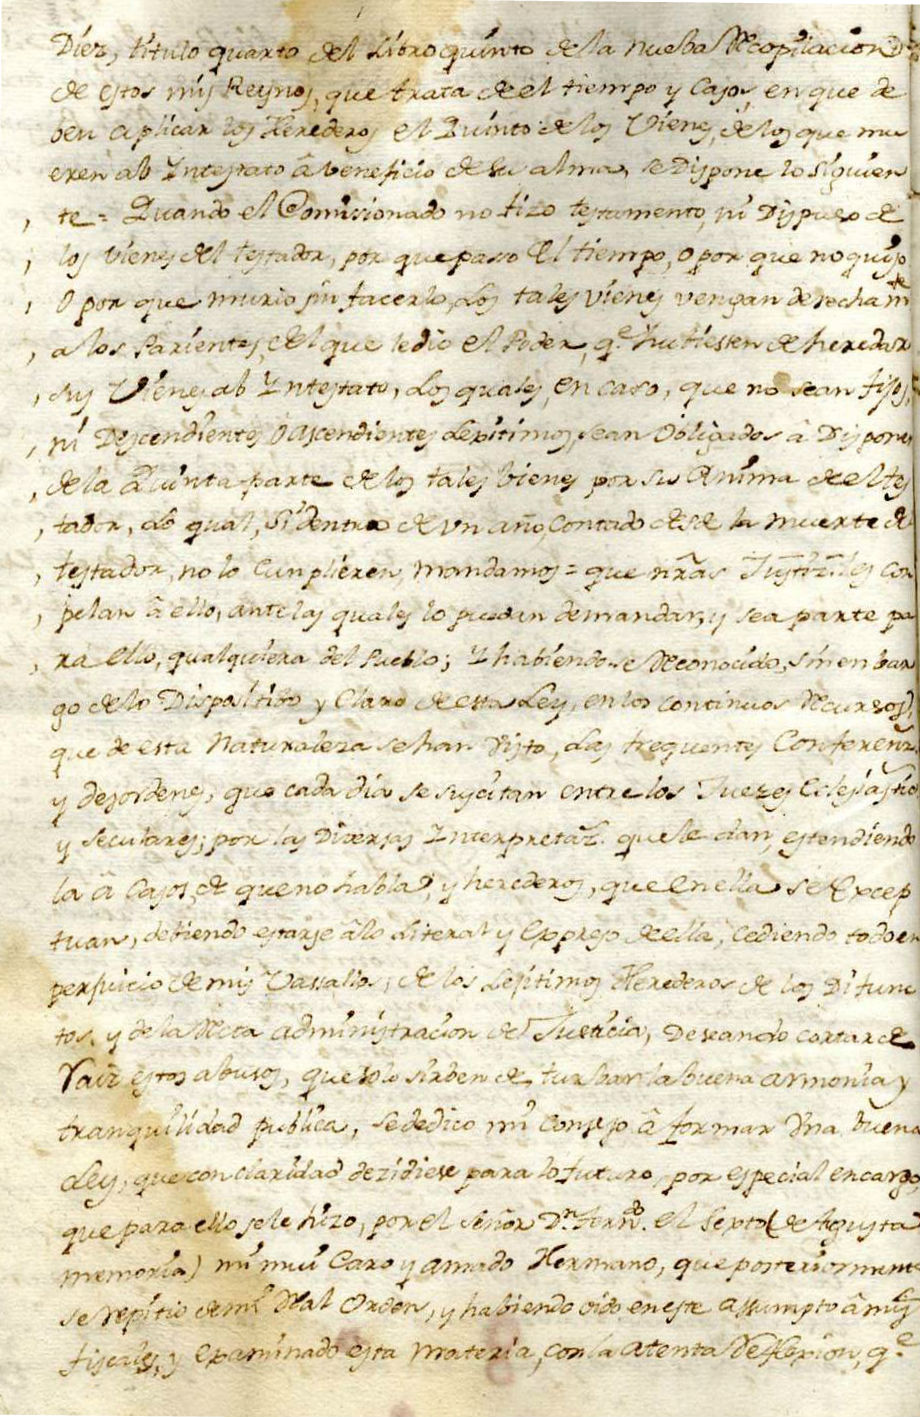 Diez, titulo quarto del Libro quinto de la nueba Recopilacion
de estos mis Reynos, que trata de el tiempo y Casos, en que de
ben aplicar los Herederos el Quinto de los Vienes, de los que mu
eren ab Yntestato â beneficio de su alma, se Dispone lo siguien
te = Quando el Comisionado no fizo testamento, ni Dispuso de
los vienes del testador, por que paso el tiempo, o por que no quiso
O por que murio sin facerlo, Los tales vienes vengan derecham.te
a los Parientes, del que le dio el Poder, q.e huviesen de heredar
sus Vienes ab Yntestato, Los quales, en caso, que no sean fijos,
ni Descendientes, O ascendientes Lexitimos, sean Obligados â Disponer
de la Quinta parte de los tales bienes por su Anima de el tes
tador, lo qual, si dentro de un año, contado desde la muerte del
testador, no lo cunplieren, mandamos = que nras Justiz.s les con
pelan â ello, ante las quales lo puedan demandar, y sea parte pa
ra ello, qualquiera del Pueblo; Y habiendose Reconocido, sin enbar
go de lo Dispositibo y Claro de esta Ley, en los continuos Recursos,
que de esta Naturaleza se han Visto, Las frequentes Conferenz.s
y desordenes, que cada dia se suscitan entre los Juezes Eclesiastic
y Seculares, por las Diversas Ynterpretaz.s que le dan, estendiendo
la â Casos, de que no habla, y herederos, que en ella se Excep
tuan, debiendo estarse â lo Literal y Expreso de ella, Cediendo todo en
perjuicio de mis Vassallos, de los Lexitimos Herederos de los Difunc
tos, y de la Recta administracion de Justicia, Deseando cortar de
Raiz estos abusos, que solo sirben de turbar la buena armonia y
tranquilidad publica, se dedico mi Consejo â formar Una buena
Ley, que con claridad dezidiese para lo futuro, por especial encargo,
que para ello se le hizo, por el Señor D.n Fern.do el Sexto (de Augusta
memoria) mi mui Caro y amado Hermano, que posteriormente
se repitio de mi Real Orden, y habiendo oido en este assumpto â mis
fiscales, y Examinado esta materia, con la atenta Reflexion, q.e